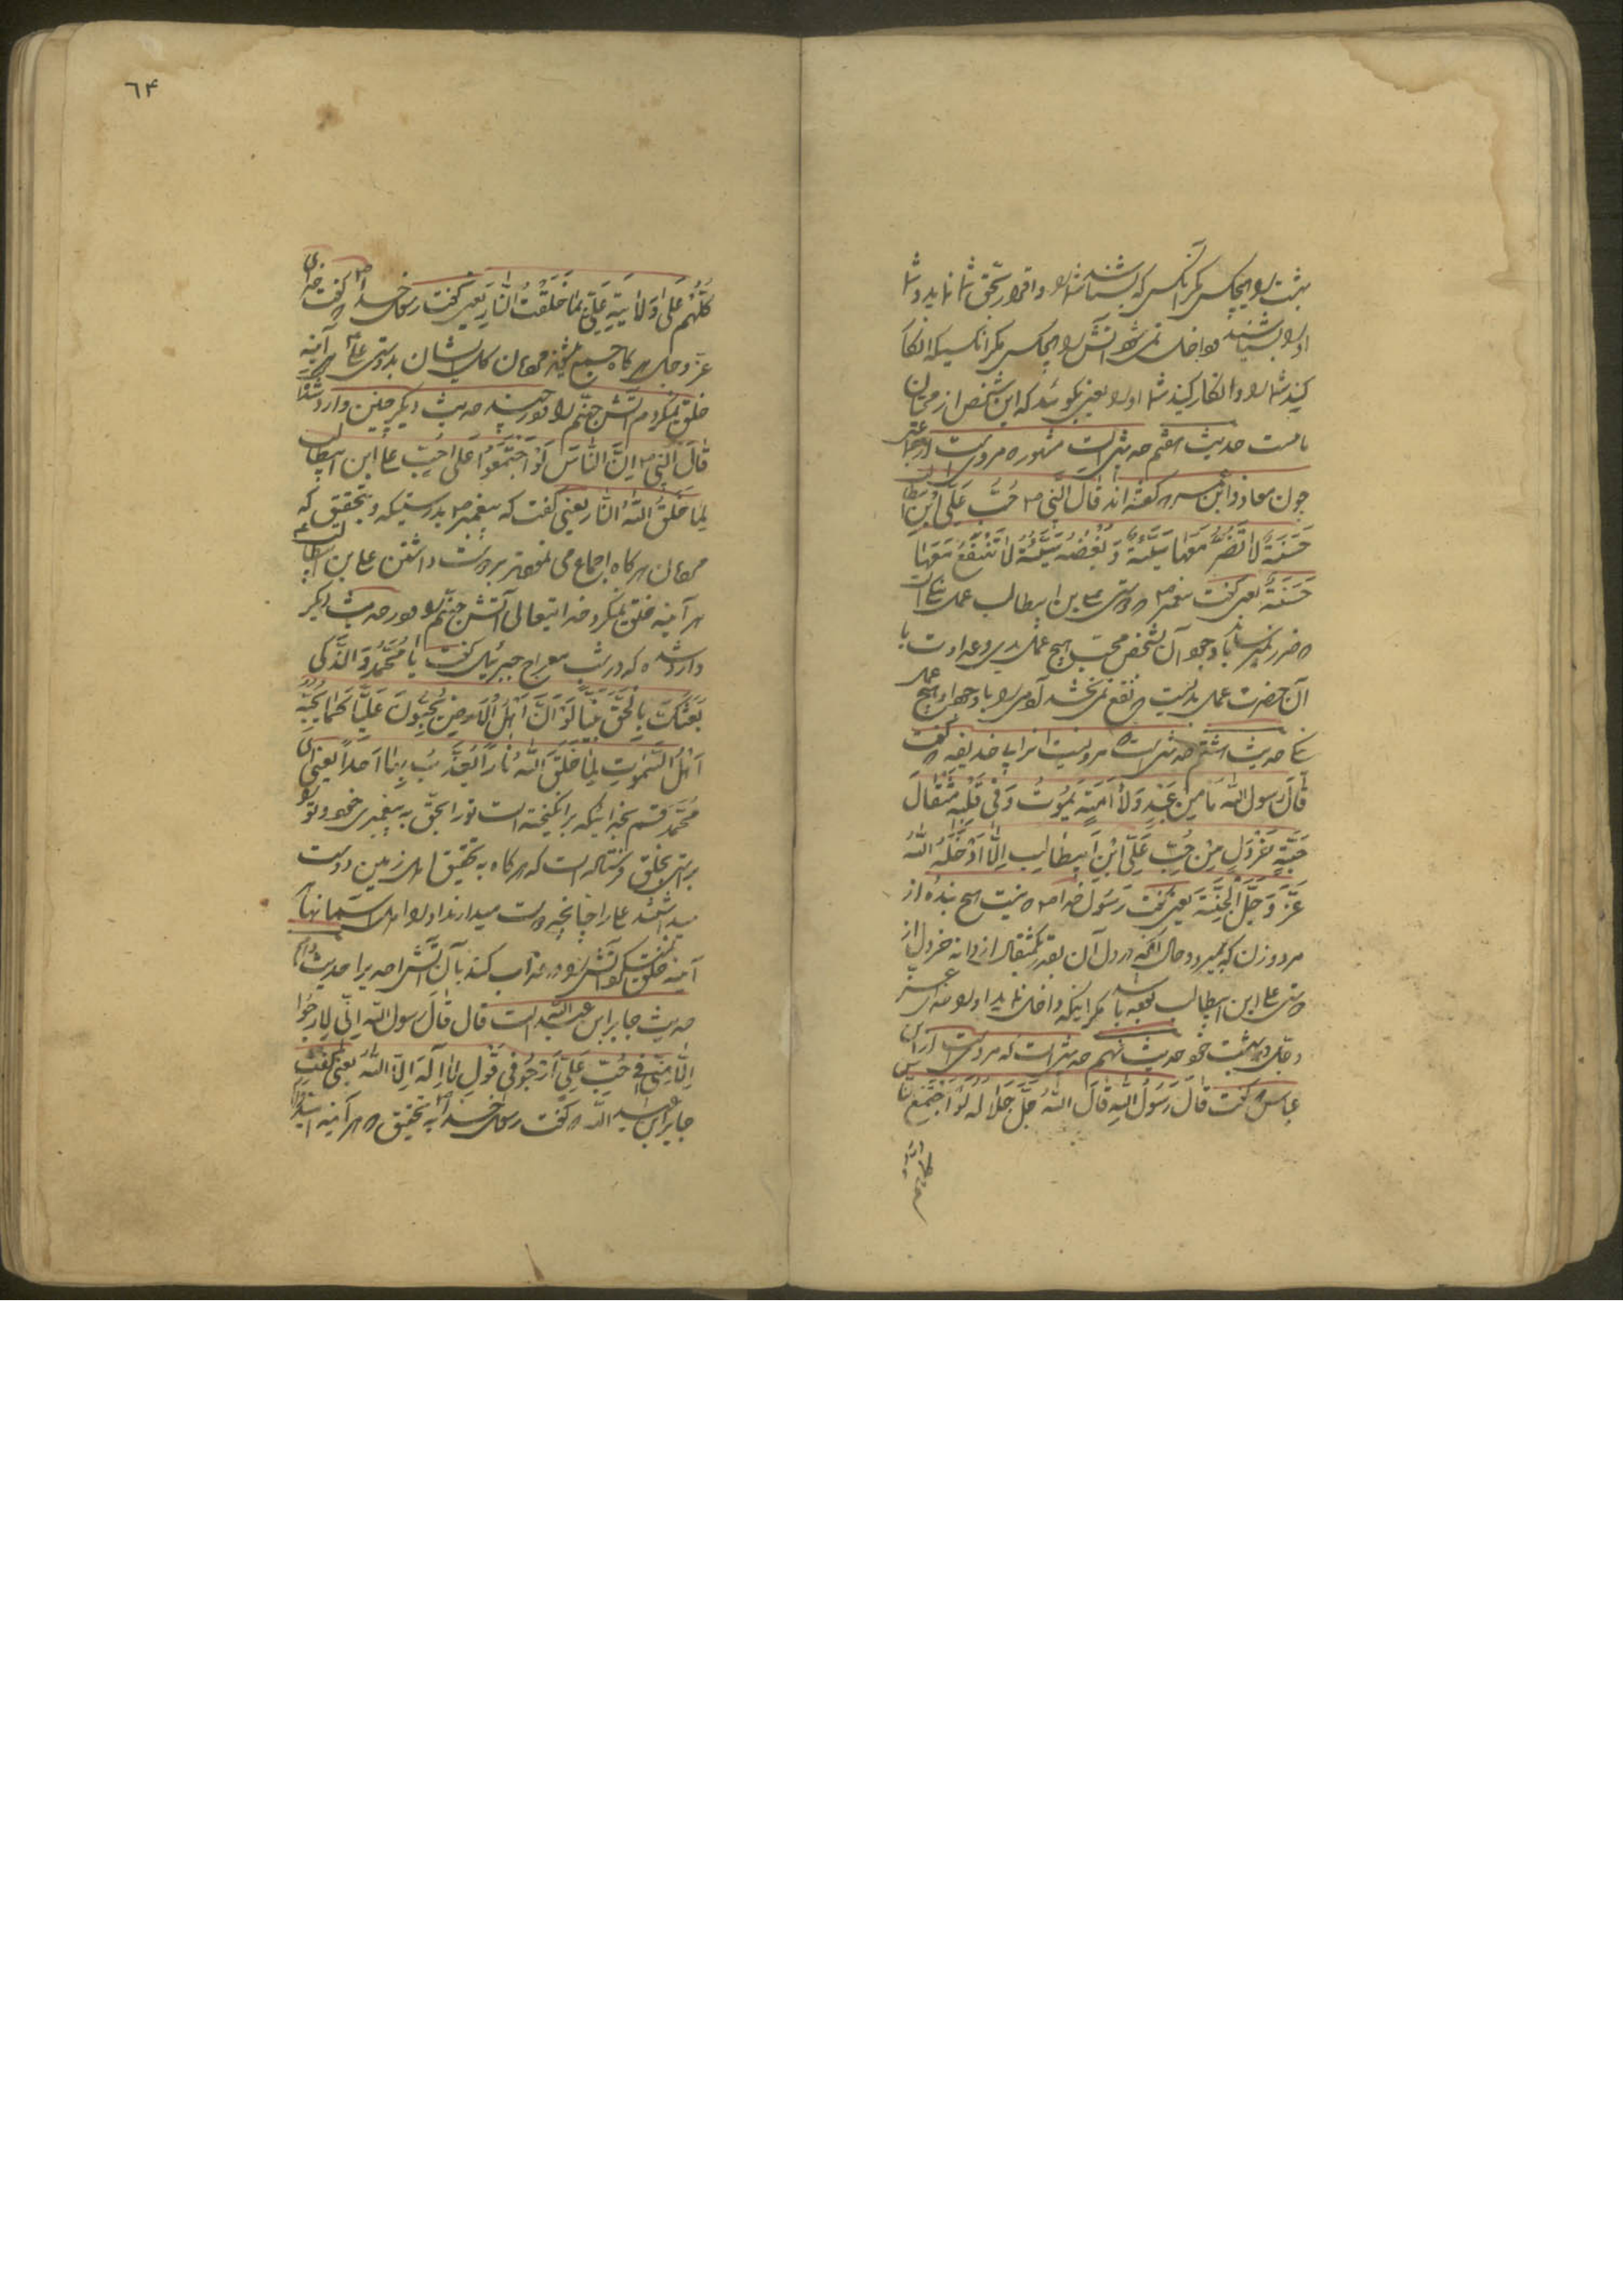 بهشت را هیچکس مکر آنکس که بشناسد شما را و اقرار بحق شما نماید و شما
او را بشناسید و داخل نمیشود آتش را هیچکس مکر آنکسیکه انکار
کند شما را و انکار کنید شما او را یعنی بکوئید که این شخص از محبان
ما نیست حدیث هفتم حدیثی است مشهوره مرویست از جماعتی
چون معاذ و ابن عمر که کفته اند قال النبی ص حُبُّ عَلِّی اِبْنِ ابیطالب
حَسَنَةٌ لٰا تَضُرُّ مَعَهٰا سَیِّئَةٌ وَ بُغْضُهُ سَیِّئَةٌ لٰا تَنْفَعُ مَعَهٰا
حَسَنَةٌ یعنی کفت پیغمبر ص دوستی علی بن ابیطالب عمل نیکی است
که ضرر نمیرساند با وجود آن شخص محب هیچ عمل بدی و عداوت با
آن حضرت عمل بدیست که نفع نمی بخشد آدمی را با وجود او هیچ عمل
نیک حدیث هشتم حدیثی است که مرویست از ابی حذیفه که کفت
قٰالَ رَسول اللّه مٰا مِنْ عَبْدٍ وَلٰا اَمَتِهِ یَمُوتُ وَفی قَلْبِهِ مِثْقٰالَ
حَبَّةٍ خَرْدَلٍ مِنْ حُبِّ عَلِّی اِبْنِ اَبیطٰالِب اِلّٰا اَدْخَلَهُ اللّٰهُ
عَزَّ وَجَلَّ الْجَنَّةَ یعنی کفت رَسُول خدا ص که نیست هیچ بنده از
مرد و زن که بمیرد و حال آنکه در دل آن بقدر یکمثقال از دانه خردل از
دوستی علی ابن ابیطالب بوده باشد مکر اینکه داخل نماید او را خدای عز
و جل در بهشت خود حدیث نهم حدیثی است که مرویست از ابن
عباس که کفت قٰالَ رَسُولُ اللّهِ قٰالَ اللّٰهُ جَلَّ جَلٰالُهُ لَوْ اِجْتَمَعَ النّٰاس
کلهم علی
٦۴
کُلُّهُمْ عَلیٰ وَلٰایَةِ عَلِّیٍ لَمٰا خَلَقْتُ النّٰارَ یعنی کفت رسول خدا ص که کفت خدای
عزّ و جل هر کاه جمع میشدند مردمان کل ایشان بدوستی علی ع هر آینه
خلق نمیکردم آتش جهنّم را و در چند حدیث دیکر چنین وارد شده
قٰالَ النّبی ص اِنَّ النّٰاسَ لَوْ اَجْتَمَعُوا عَلیٰ حُبِّ علی ابن ابیطالب
لَمٰا خَلَقَ اللّٰهُ النّٰار یعنی کفت که پیغمبر ص بدرستیکه و بتحقیق که
مردمان هر کاه اجماع می نمودند بر دوست داشتن علی بن ابیطالب ع
هر آینه خلق نمیکرد خدایتعالی آتش جهنّم را و در حدیث دیکر
وارد شده که در شب معراج جبرئیل کفت یٰا مُحَمَّدُ وَ الَّذی
بَعَثَکَ بِالْحَقِّ نَبِیّاً لَوْ اَنَّ اَهْلَ الْاَرضِ یُحِبُّونَ عَلِیّاً کَمٰا یُحِبُّهُ
اَهْلُ السَّمٰوٰتِ لِمٰا خَلَقَ اللّٰهُ نٰاراً یُعَذِّبُ بِهٰا اَحَداً یعنی ای
محُمّد قسم بخدائیکه بر انکیخته است تو را بحقّ به پیغمبری خود و تو را
براستی بخلق فرستاده است که هر کاه به تحقیق اهل زمین دوست
میداشتند علی را چنانچه دوست میدارند او را اهل آسمانها هر
آینه خلق نمیکرد آتش را و عذاب کند بآن آتش احدیرا حدیث دهم
حدیث جابر ابن عبد اللّه است قال قٰالَ رسول اللّه اِنّی لِارَجُوا
اِلٰا مَتّی فی حُبِّ عَلّیٍ اَرْجُو فی قَوْلِ لٰا اِلٰهَ اِلاّ اللّٰهُ یعنی کفت
جابر ابن عبد اللّه که کفت رسول خدا به تحقیق که هر آینه امیدوارم